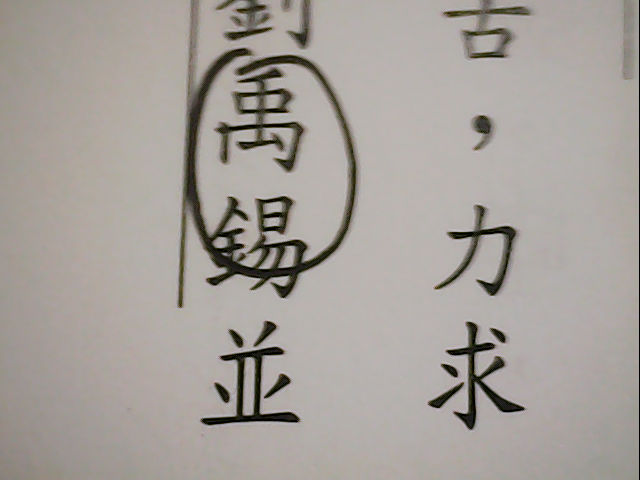 古，力求
劉禹錫並